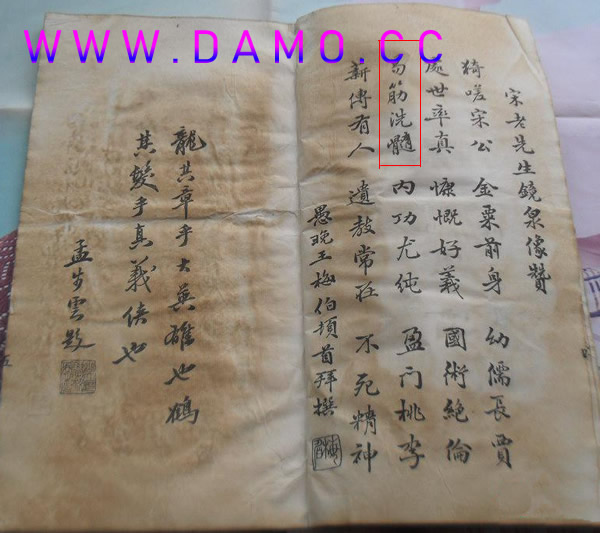 WWW.DAMO.CC
宋老先生鏡泉像贊
猗嗟宋公 金粟前身 幼儒長賈
處世率真 慷慨好義 國術絕倫
易筋洗髓 內功尤純 盈门桃李
薪傳有人 遺教常在 不死精神
愚晚王梅伯頓首拜撰
龍其章乎大英雄也鶴
其髮乎真義俠也
孟步雲題